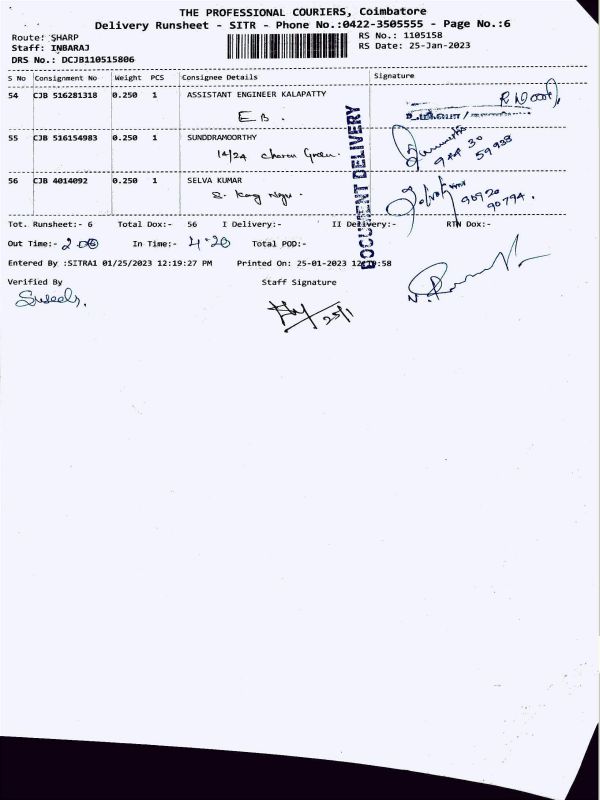 THE PROFESSIONAL COURIERS, Coimbatore
Delivery Runsheet - SITR - Phone No.:0422-3505555 - Page No.:6
Route: SHARP
RS No.: 1105158
Staff: INBARAJ
RS Date: 25-Jan-2023
DRS No.: DCJB110515806
S No Consignment No Weight PCS Consignee Details Signature
54 CJB 516281318 0.250 1 ASSISTANT ENGINEER KALAPATTY
E B .
55 CJB 516154983 0.250 1 SUNDDRAMOORTHY
14/24
56 CJB 4014092 0.250 1 SELVA KUMAR
90920
90794 .
DOCUMENT DELIVERY
Tot. Runsheet:- 6 Total Dox:- 56 I Delivery:- II Delivery:- RTN Dox:-
Out Time:- In Time:- 4.20 Total POD:-
Entered By :SITRA1 01/25/2023 12:19:27 PM Printed On: 25-01-2023 12:19:58
Verified By Staff Signature
25/1